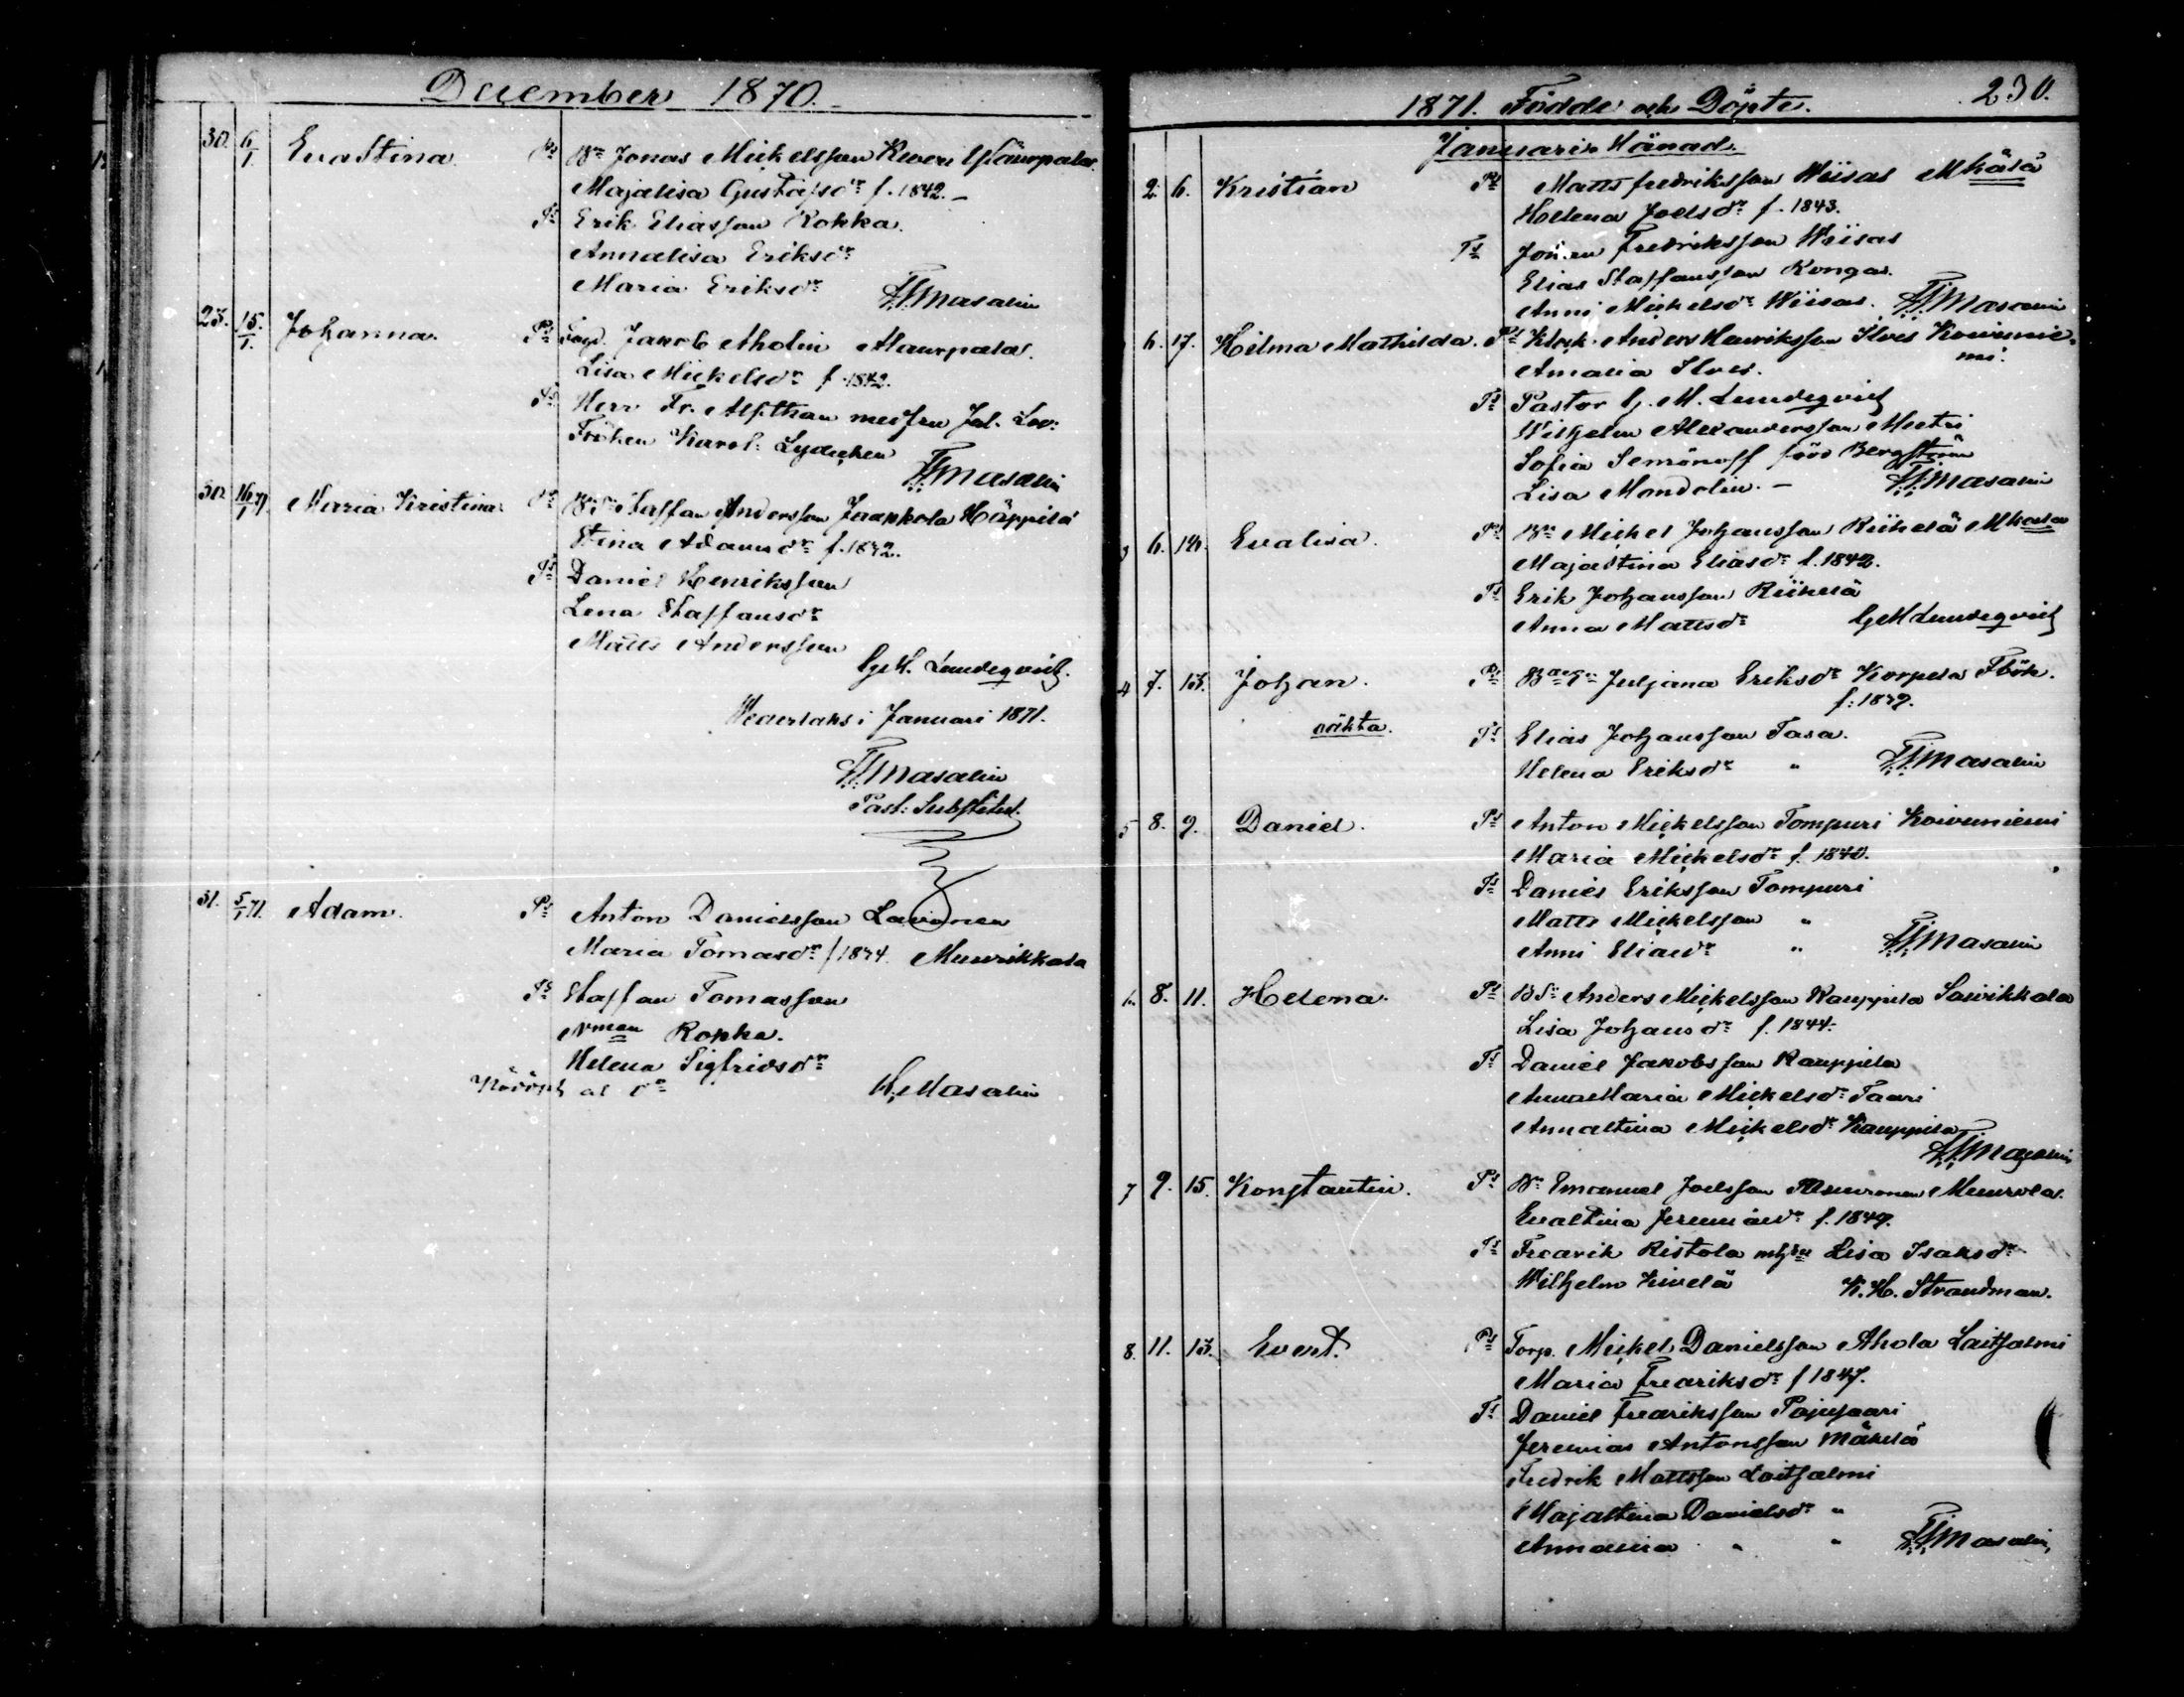 December 1870.
30. 6/1. Eva Stina. Ps Bn Jonas Mickelsson Keveri Yläurpala.
Majalisa Gustafsdr f. 1842. –
Ts Erik Eliasson Rokka.
Annalisa Eriksdr
Maria Eriksdr Masalin
23. 15/1. Johanna. Ps Jakob Aholin Alaurpala.
Lisa Mickelsdr f. 1842.
Ts Herr Fr. Alfthan med fru Jul. Lov:
Fröken Karol: Lydecken
Masalin
30. 16/1 71. Maria Kristina. Ps Staffan Andersson Jaakkola Häppilä
Stina Adamsdr f. 1842.
Ts Daniel Henriksson
Lena Staffansdr
Matts Andersson
G. M. Lundeqvist.
Wederlaks i Januari 1871.
Masalin
Past: Substitut.
31. 5/1 71. Adam. Ps Anton Danielsson Lavonen
Maria Tomasdr f 1844. Muurikkala
Ts Staffan Tomasson
Nman Rokka.
Helena Sigfridsdr
Nöddöpt af dr Masalin
230.
1871. Födde och Döpte.
Januari Månad.
2. 6. Kristian Ps Matts Fredriksson Wiisas Mkälä
Helena Joelsdr f. 1843.
Ts Johan Fredriksson Wiisas
Elias Staffansson Kongas.
Anni Mickelsdr Wiisas. Masalin
6. 17. Hilma Mathilda. Ps Klock. Anders Henriksson Ilves Koivunie-
mi.
Amalia Ilves.
Ts Pastor G. M. Lundeqvist
Wilhelm Alexandersson Meetri
Sofia Semönoff född Bergström
Lisa Mondolin. – Masalin
3 6. 14. Evalisa. Ps Bn Mickel Johansson Riihelä Mkälä
Majastina Eliasdr f. 1842.
Ts Erik Johansson Riihelä
Anna Mattsdr G M Lundeqvist
4 7. 13. Johan. Ps Juljana Eriksdr Korpela Fbök.
f: 1849.
oäkta. Ts Elias Johansson Tasa.
Helena Eriksdr " Masalin
5 8. 9. Daniel. Ps Anton Mickelsson Tompuri Koivuniemi
Maria Mickelsdr f. 1840.
Ts Daniel Eriksson Tompuri
Matts Mickelsson "
Anni Eliasdr " Masalin
6. 8. 11. Helena. Ps Bsn Anders Mickelsson Kauppila Savikkala
Lisa Johansdr f. 1844.
Ts Daniel Jakobsson Kauppila
Anna Maria Mickelsdr Taari
Annastina Mickelsdr Kauppila
Masalin
7 9. 15. Konstantin. Ps Bn Emanuel Joelsson Muurola.
Evastina Jeremiasdr f. 1849.
Ts Fredrik Ristola mhu Lisa Isaksdr
Wilhelm Kivelä K. H. Strandman.
8. 11. 13. Evert. Ps Torp. Mickel Danielsson Ahola Laitsalmi
Maria Fredriksdr f 1847.
Ts Daniel Fredriksson Pajusaari
Jeremias Antonsson Mäkelä
Fredrik Mattsson Laitsalmi
Majastina Danielsdr "
Annalisa " " Masalin